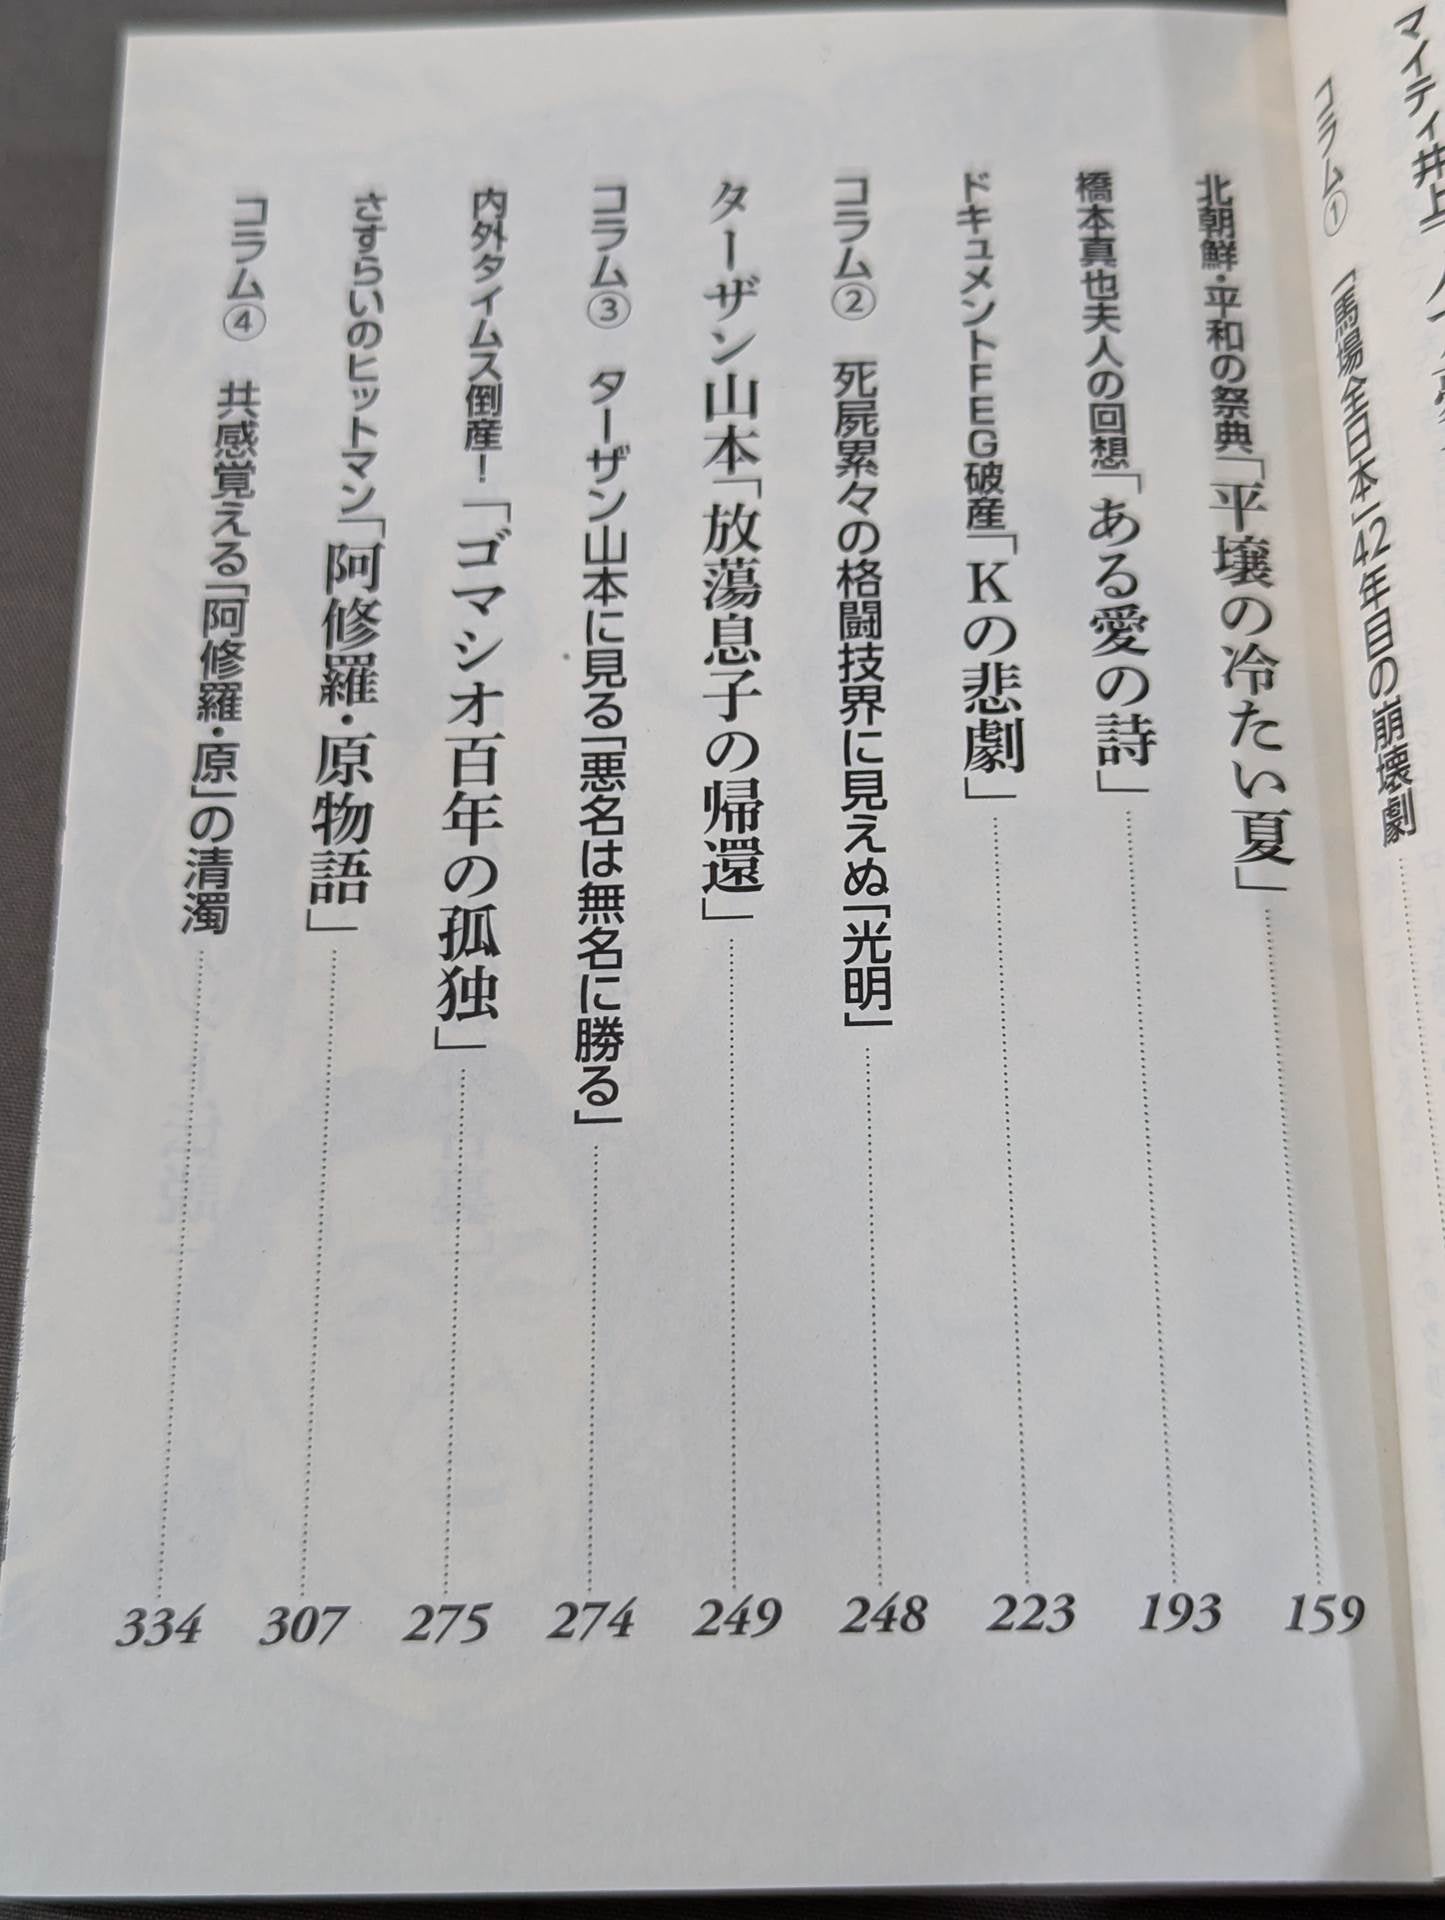 マイティ井上
コラム① 「馬場全日本」42年目の崩壊劇
北朝鮮・平和の祭典「平壌の冷たい夏」 159
橋本真也夫人の回想「ある愛の詩」 193
ドキュメントFEG破産「Kの悲劇」 223
コラム② 死屍累々の格闘技界に見えぬ「光明」 248
ターザン山本「放蕩息子の帰還」 249
コラム③ ターザン山本に見る「悪名は無名に勝る」 274
内外タイムス倒産!「ゴマシオ百年の孤独」 275
さすらいのヒットマン「阿修羅・原物語」 307
コラム④ 共感覚える「阿修羅・原」の清濁 334